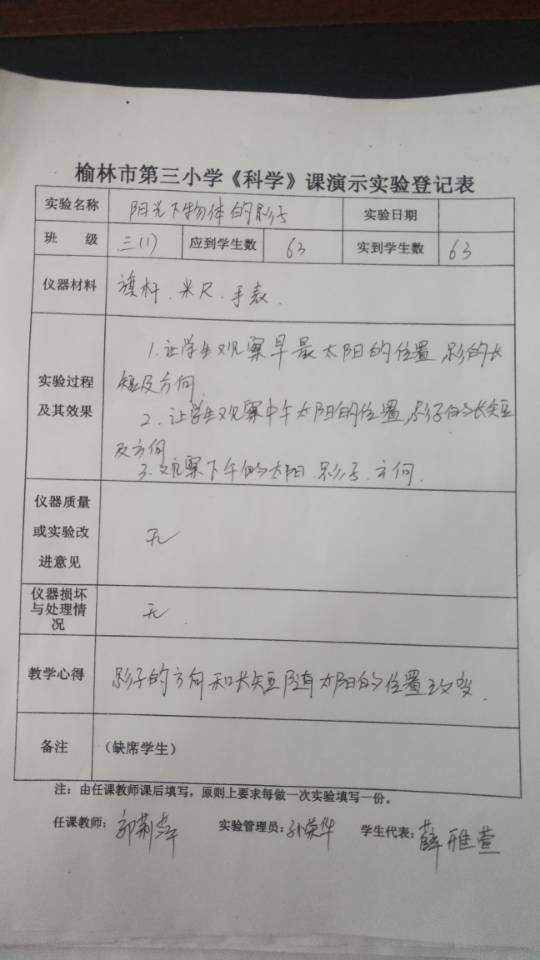 榆林市第三小学《科学》课演示实验登记表
实验名称 阳光下物体的影子 实验日期
班 级 三(1) 应到学生数 63 实到学生数 63
仪器材料 旗杆、米尺、手表.
实验过程
及其效果
1.让学生观察早晨太阳的位置,影的长
短及方向
2.让学生观察中午太阳的位置,影子的长短
及方向
3.观察下午的太阳.影子.方向.
仪器质量
或实验改
进意见
无
仪器损坏
与处理情
况
无
教学心得 影子的方向和长短随着太阳的位置改变.
备注 (缺席学生)
注:由任课教师课后填写,原则上要求每做一次实验填写一份。
任课教师: 实验管理员: 学生代表:薛雅萱